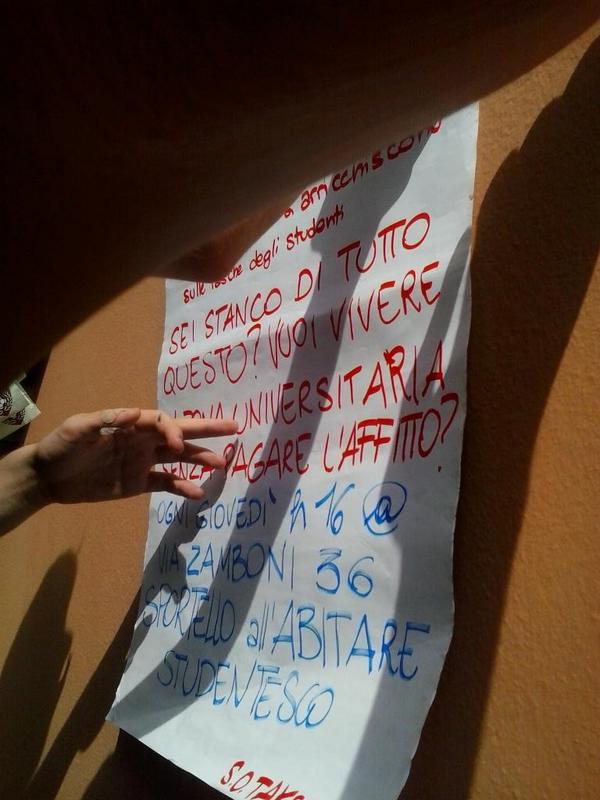 arricchiscono
sulle tasche degli studenti
SEI STANCO DI TUTTO
QUESTO? VUOI VIVERE
UNIVERSITARIA
SENZA PAGARE L'AFFITTO?
OGNI GIOVEDI' h 16 @
VIA ZAMBONI 36
SPORTELLO all'ABITARE
STUDENTESCO